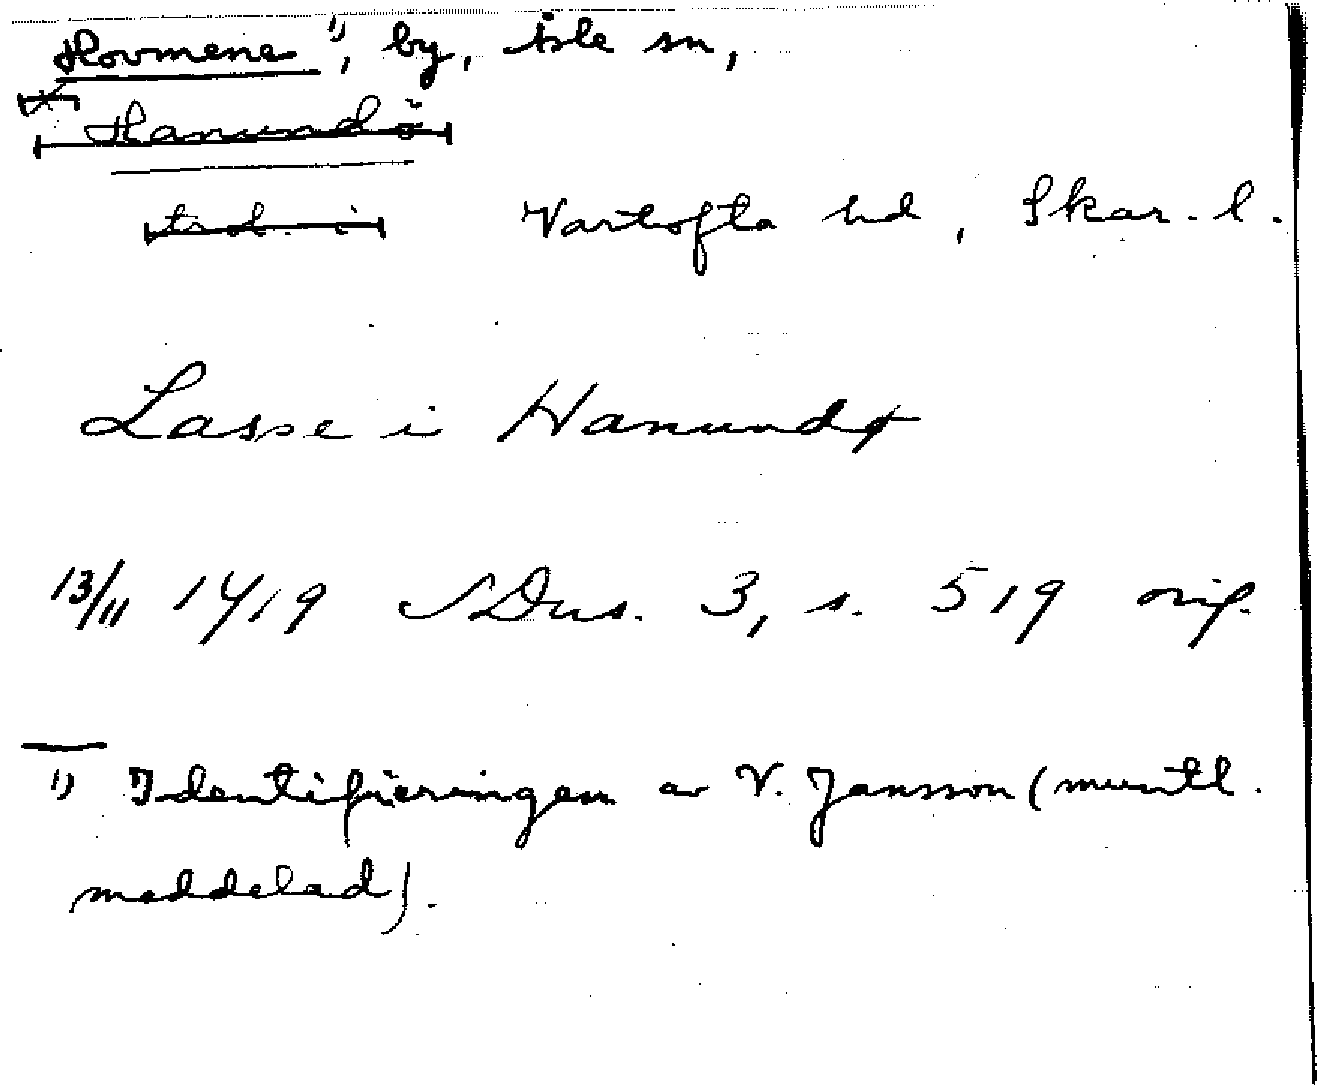 Hovmene 1), by, Åsle sn,
Hanundö
trol. i Vartofta hd, Skar. l.
Lasse i Hanundø
13/11 1419 SDns. 3, s. 519 orig.
1) Identifieringen av V. Jansson (muntl.
meddelad).